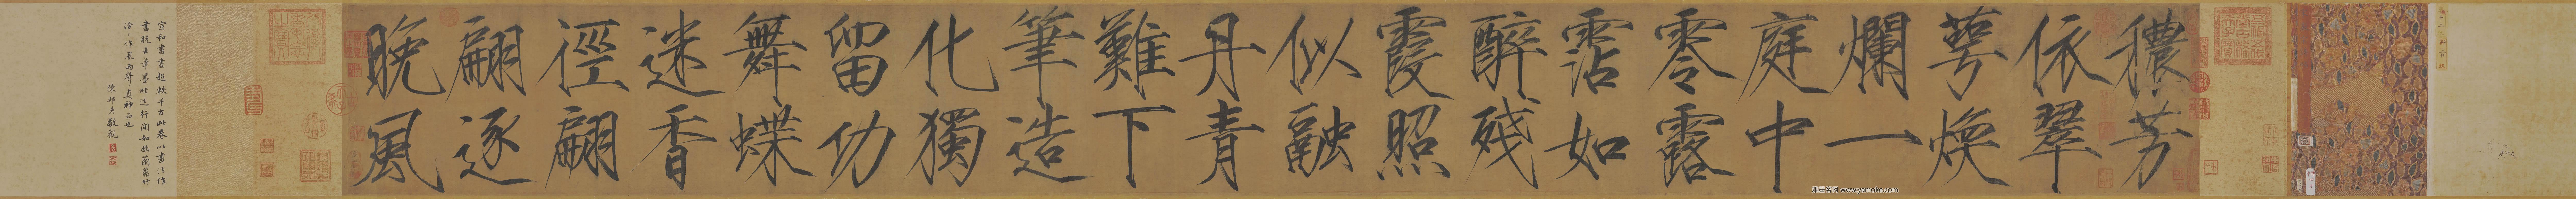 穠芳
依翠
萼煥
爛一
庭中
零露
霑如
醉殘
霞照
似融
丹青
難下
筆造
化獨
留功
舞蝶
迷香
徑翩
翩逐
晚風
宣和書畫超軼千古此卷以書法作
畫脫去筆墨畦逕行間如幽蘭叢竹
泠泠作風雨聲真神品也
陳邦彥敬觀
www.yamoke.com